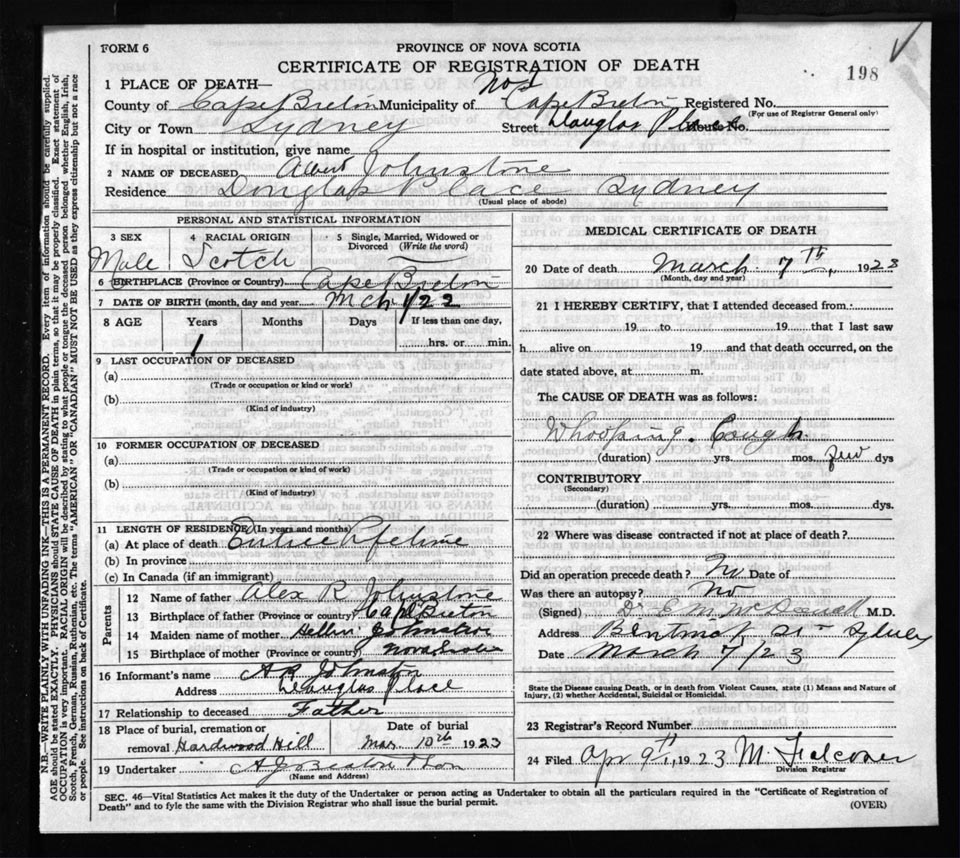 FORM 6
PROVINCE OF NOVA SCOTIA
CERTIFICATE OF REGISTRATION OF DEATH
198
1 PLACE OF DEATH—
No 1
County of Cape Breton Municipality of Cape Breton Registered No.
(For use of Registrar General only)
City or Town Sydney Street Douglas Place House No.
If in hospital or institution, give name
2 NAME OF DECEASED Albert Johnstone
Residence Douglas Place Sydney
(Usual place of abode)
PERSONAL AND STATISTICAL INFORMATION
3 SEX 4 RACIAL ORIGIN 5 Single, Married, Widowed or Divorced (Write the word)
Male Scotch
6 BIRTHPLACE (Province or Country) Cape Breton
7 DATE OF BIRTH (month, day and year) Mch 1/22
8 AGE Years Months Days If less than one day,
1 hrs. or min.
9 LAST OCCUPATION OF DECEASED
(a)
(Trade or occupation or kind or work)
(b)
(Kind of industry)
10 FORMER OCCUPATION OF DECEASED
(a)
(Trade or occupation or kind of work)
(b)
(Kind of industry)
11 LENGTH OF RESIDENCE (In years and months)
(a) At place of death Entire Lifetime
(b) In province
(c) In Canada (if an immigrant)
Parents
12 Name of father Alex R Johnstone
13 Birthplace of father (Province or country) Cape Breton
14 Maiden name of mother Johnstone
15 Birthplace of mother (Province or country) Nova Scotia
16 Informant's name A R Johnston
Address Douglas Place
17 Relationship to deceased Father
18 Place of burial, cremation or removal Hardwood Hill
Date of burial Mar 10th 1923
19 Undertaker A J Beaton & Son
(Name and Address)
MEDICAL CERTIFICATE OF DEATH
20 Date of death March 7th, 1923
(Month, day and year)
21 I HEREBY CERTIFY, that I attended deceased from
19 to 19 that I last saw
h alive on 19 and that death occurred, on the
date stated above, at m.
The CAUSE OF DEATH was as follows:
Whooping Cough
(duration) yrs. mos. few dys
CONTRIBUTORY
(Secondary)
(duration) yrs. mos. dys.
22 Where was disease contracted if not at place of death?
Did an operation precede death? No Date of
Was there an autopsy? No
(Signed) Dr E M McDonald M.D.
Address St Sydney
Date March 7/23
State the Disease causing Death, or in death from Violent Causes, state (1) Means and Nature of
Injury, (2) whether Accidental, Suicidal or Homicidal.
23 Registrar's Record Number
24 Filed Apr 9th, 1923 M Falconer
Division Registrar
SEC. 46—Vital Statistics Act makes it the duty of the Undertaker or person acting as Undertaker to obtain all the particulars required in the "Certificate of Registration of
Death" and to fyle the same with the Division Registrar who shall issue the burial permit.
(OVER)
N.B.—WRITE PLAINLY WITH UNFADING INK—THIS IS A PERMANENT RECORD. Every item of information should be carefully supplied.
AGE should be stated EXACTLY. PHYSICIANS should STATE CAUSE OF DEATH in plain terms, so that it may be properly classified. Exact statement of
OCCUPATION is very important. RACIAL ORIGIN will be described by stating to what people or tongue the deceased person belonged whether English, Irish,
Scotch, French, German, Russian, Ruthenian, etc. The terms "AMERICAN" OR "CANADIAN" MUST NOT BE USED as they express citizenship but not a race
or people. See instructions on back of Certificate.